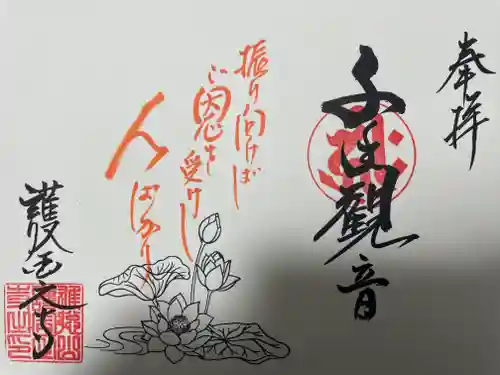 奉拝
千手觀音
振り向けば
ご恩を受けし
人ばかり
護国之寺